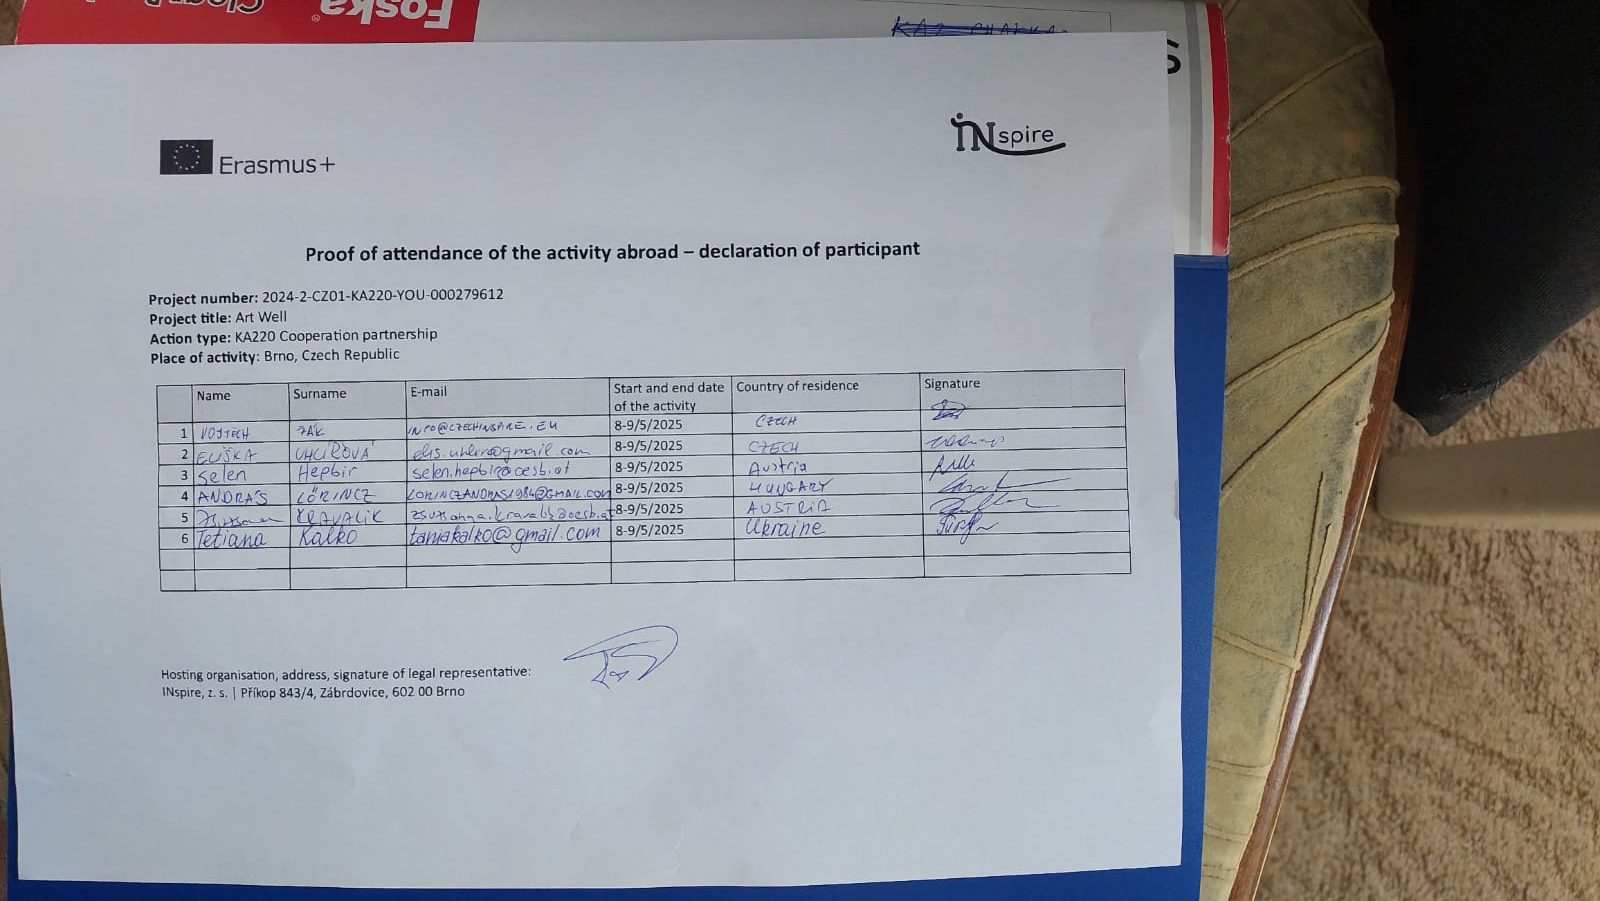 Foska®
KA2
S
iNspire
Erasmus+
Proof of attendance of the activity abroad – declaration of participant
Project number: 2024-2-CZ01-KA220-YOU-000279612
Project title: Art Well
Action type: KA220 Cooperation partnership
Place of activity: Brno, Czech Republic
Name Surname E-mail Start and end date of the activity Country of residence Signature
1 VOJTECH ŽÁK INFO@CZECHINSPIRE.EU 8-9/5/2025 CZECH
2 ELIŠKA UHLÍŘOVÁ elis.uhlir@gmail.com 8-9/5/2025 CZECH
3 Selen Hepbir selen.hepbir@oesb.at 8-9/5/2025 Austria
4 ANDRÁS LŐRINCZ LORINCZANDRAS1984@GMAIL.COM 8-9/5/2025 HUNGARY
5 KRAVALIK 8-9/5/2025 AUSTRIA
6 Tetiana Kalko taniakalko@gmail.com 8-9/5/2025 Ukraine
Hosting organisation, address, signature of legal representative:
INspire, z. s. | Příkop 843/4, Zábrdovice, 602 00 Brno